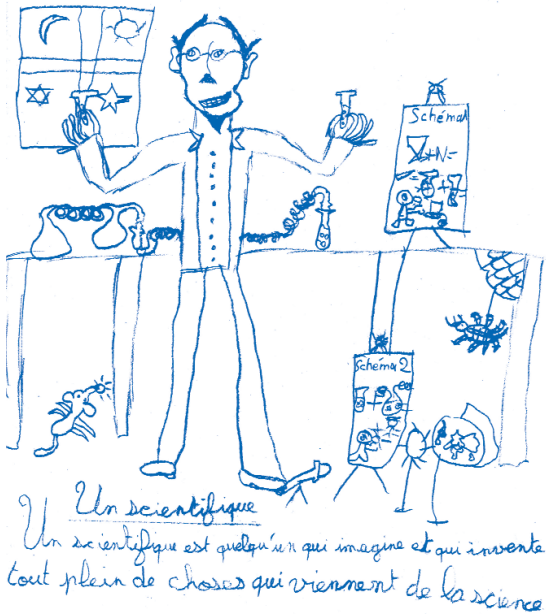 Schéma1
+N=
Schéma 2
Un scientifique
Un scientifique est quelqu'un qui imagine et qui invente
tout plein de choses qui viennent de la science